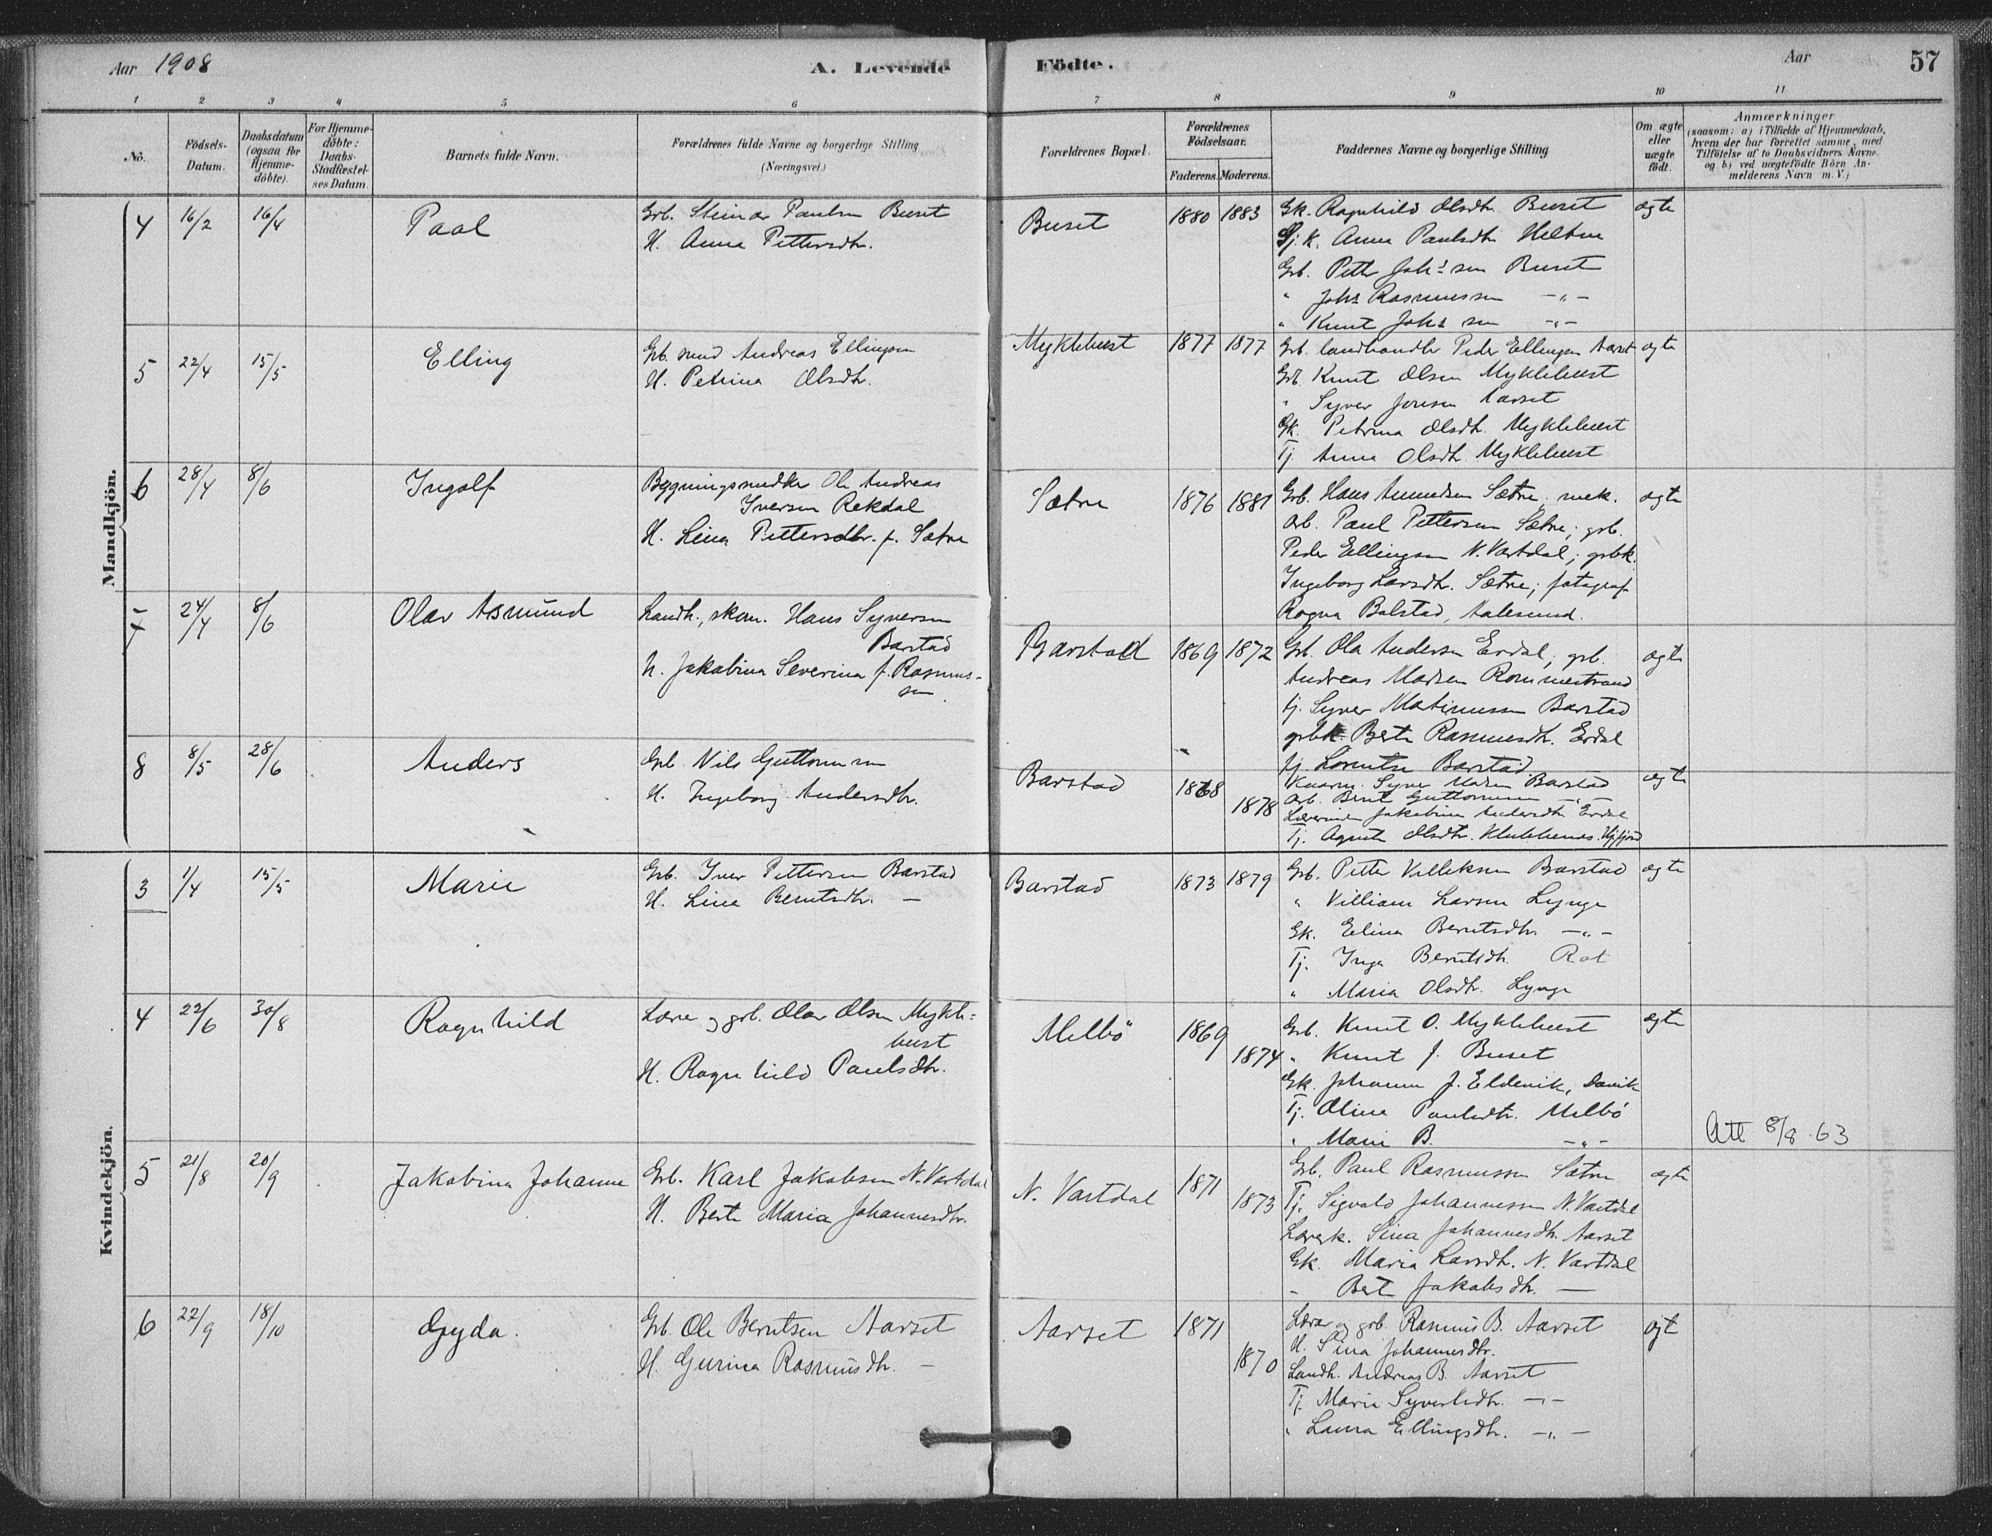 Aar 1908
A. Levende
Födte.
Aar
57
1 2 3 4 5 6 7 8 9 10 11
No.
Födsels-
Datum.
Daabsdatum
(ogsaa for
Hjemme-
döbte).
For Hjemme-
döbte:
Daabs-
Stadfæstel-
ses Datum.
Barnets fulde Navn.
Forældrenes fulde Navne og borgerlige Stilling
(Næringsvei.)
Forældrenes Bopæl.
Forældrenes
Födselsaar.
Faderens.
Moderens.
Faddernes Navne og borgerlige Stilling
Om ægte
eller
uægte
födt.
Anmærkninger
(saasom: a) i Tilfælde af Hjemmedaab,
hvem der har forrettet samme, med
Tilföielse af to Daabsvidners Navne,
og b) ved uægtefödte Börn An-
melderens Navn m. V.)
Mandkjön.
4 16/2 16/4 Paal
Grb. Steinar Paulsen Buset
H. Anna Pettersdtr.
Buset 1880 1883
Gk. Ragnhild Olsdtr Buset
Gj. K. Anna Paulsdtr Heltne
Grb. Petter Johs sen Buset
" Johs Rasmussen —"—
" Knut Johs sen —"—
ægte
5 22/4 15/5 Elling
Grb. smed Andreas Ellingsen
H. Petrina Olsdtr.
Myklebust 1877 1877
Grb. landhandler Peder Ellingsen Aarset
Grb. Knut Olsen Myklebust
" Syver Jensen Aarset
Gk. Petrina Olsdtr. Myklebust
Tj. Anna Olsdtr. Myklebust
ægte
6 28/4 8/6 Ingolf
Bygningssnedker Ole Andreas
Iversen Rekdal
H. Lina Pettersdtr. f. Sætre
Sætre 1876 1881
Grb. Hans Amundsen Sætre; mek.
arb. Paul Pettersen Sætre; grb.
Peder Ellingsen N. Vartdal; grbk.
Ingeborg Larsdtr. Sætre; fotograf
Ragna Bolstad, Aalesund.
ægte
7 24/4 8/6 Olav Asmund
Landh., skom. Hans Syversen
Barstad
H. Jakobina Severina f. Rasmus-
sen
Barstad 1869 1872
Grb. Ola Andersen Erdal; grb.
Andreas Madsen Rommestrand
tj. Syver Martinussen Barstad
grbk. Berte Rasmusdtr. Erdal
tj. Lorentse Barstad
ægte
8 8/5 28/6 Anders
Grb. Nils Guttormsen
H. Ingeborg Andersdtr.
Barstad 1868 1878
Syver Madsen Barstad
arb. Bernt Guttormsen —"—
Lærerinde Jakobina Andersdtr Erdal
Tj. Agnete Olsdtr. Klubbenes. Hjifjord
ægte
Kvindekjön.
3 1/4 15/5 Marie
Grb. Iver Pettersen Barstad
H. Lina Berntsdtr. —
Barstad 1873 1879
Grb. Petter Villiksen Barstad
" Villiam Larsen Lynge
Gk. Elina Berntsdtr. —"—
Tj. Inga Berntsdtr. Rot
" Maria Olsdtr. Lynge
ægte
4 22/6 30/8 Ragnhild
Lærer og grb. Olav Olsen Mykle-
bust
H. Ragnhild Paulsdtr.
Melbö 1869 1874
Grb. Knut O. Myklebust
" Knut J. Buset
Gk. Johanne J. Eldevik, Davik
Tj. Oline Paulsdtr. Melbö
" Marie B. —"—
ægte
Att 8/8 63
5 21/8 20/9 Jakobina Johanne
Grb. Karl Jakobsen N. Vartdal
H. Berte Maria Johannesdtr.
N. Vartdal 1871 1873
Grb. Paul Rasmussen Sætre
Tj. Sigvald Johannessen N. Vartdal
Lærerk. Sina Johannesdtr. Aarset
Gk. Maria Larsdtr. N. Vartdal
" Berte Jakobsdtr. —
ægte
6 22/9 18/10 Gyda.
Grb. Ole Berntsen Aarset
H. Gurina Rasmusdtr. —
Aarset 1871 1870
Lærer og grb. Rasmus B. Aarset
H. Sina Johannesdtr.
Landh. Andreas B. Aarset
Tj. Marie Syvertsdtr. —"—
" Laura Ellingsdtr. —"—
ægt